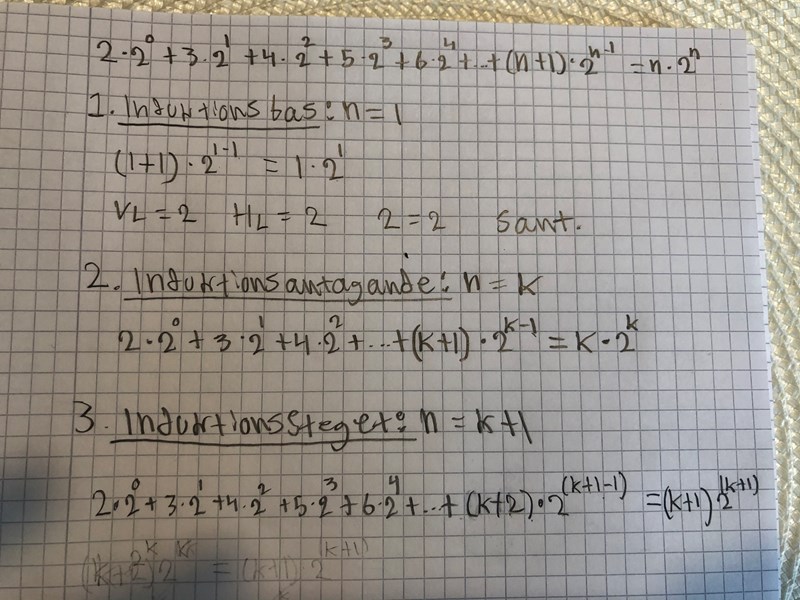 2·2⁰ + 3·2¹ + 4·2² + 5·2³ + 6·2⁴ + ... + (n+1)·2ⁿ⁻¹ = n·2ⁿ
1. Induktionsbas: n = 1
(1+1)·2¹⁻¹ = 1·2¹
VL = 2 HL = 2 2 = 2 Sant.
2. Induktionsantagande: n = k
2·2⁰ + 3·2¹ + 4·2² + ... + (k+1)·2ᵏ⁻¹ = k·2ᵏ
3. Induktionssteget: n = k+1
2·2⁰ + 3·2¹ + 4·2² + 5·2³ + 6·2⁴ + ... + (k+2)·2⁽ᵏ⁺¹⁻¹⁾ = (k+1)2⁽ᵏ⁺¹⁾
= (k+1)·2⁽ᵏ⁺¹⁾